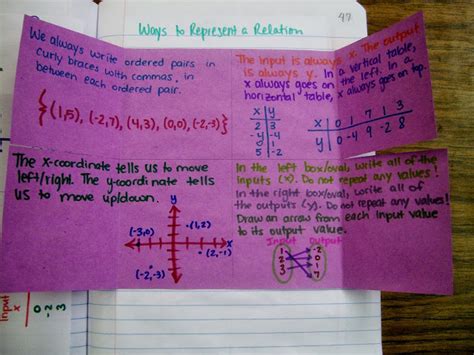 Ways to Represent a Relation
47
We always write ordered pairs in
curly braces with commas in
between each ordered pair.
{(1,5), (-2,7), (4,3), (0,0), (-2,-3)}
The input is always x. The output
is always y. In a vertical table,
x always goes on the left. In a
horizontal table, x always goes on top.
x y
2 3
-4 -4
0 1
5 -2
x 0 1 7 1 3
y 0 -4 9 -2 8
The x-coordinate tells us to move
left/right. The y-coordinate tells
us to move up/down.
y
(-3,0)
(1,2)
x
(2,-1)
(-2,-3)
In the left box/oval, write all of the
inputs (x). Do not repeat any values!
In the right box/oval, write all of
the outputs (y). Do not repeat any values!
Draw an arrow from each input value
to its output value.
Input Output
1 -2
2 0
3 1
7
Input
x
0
-2
3